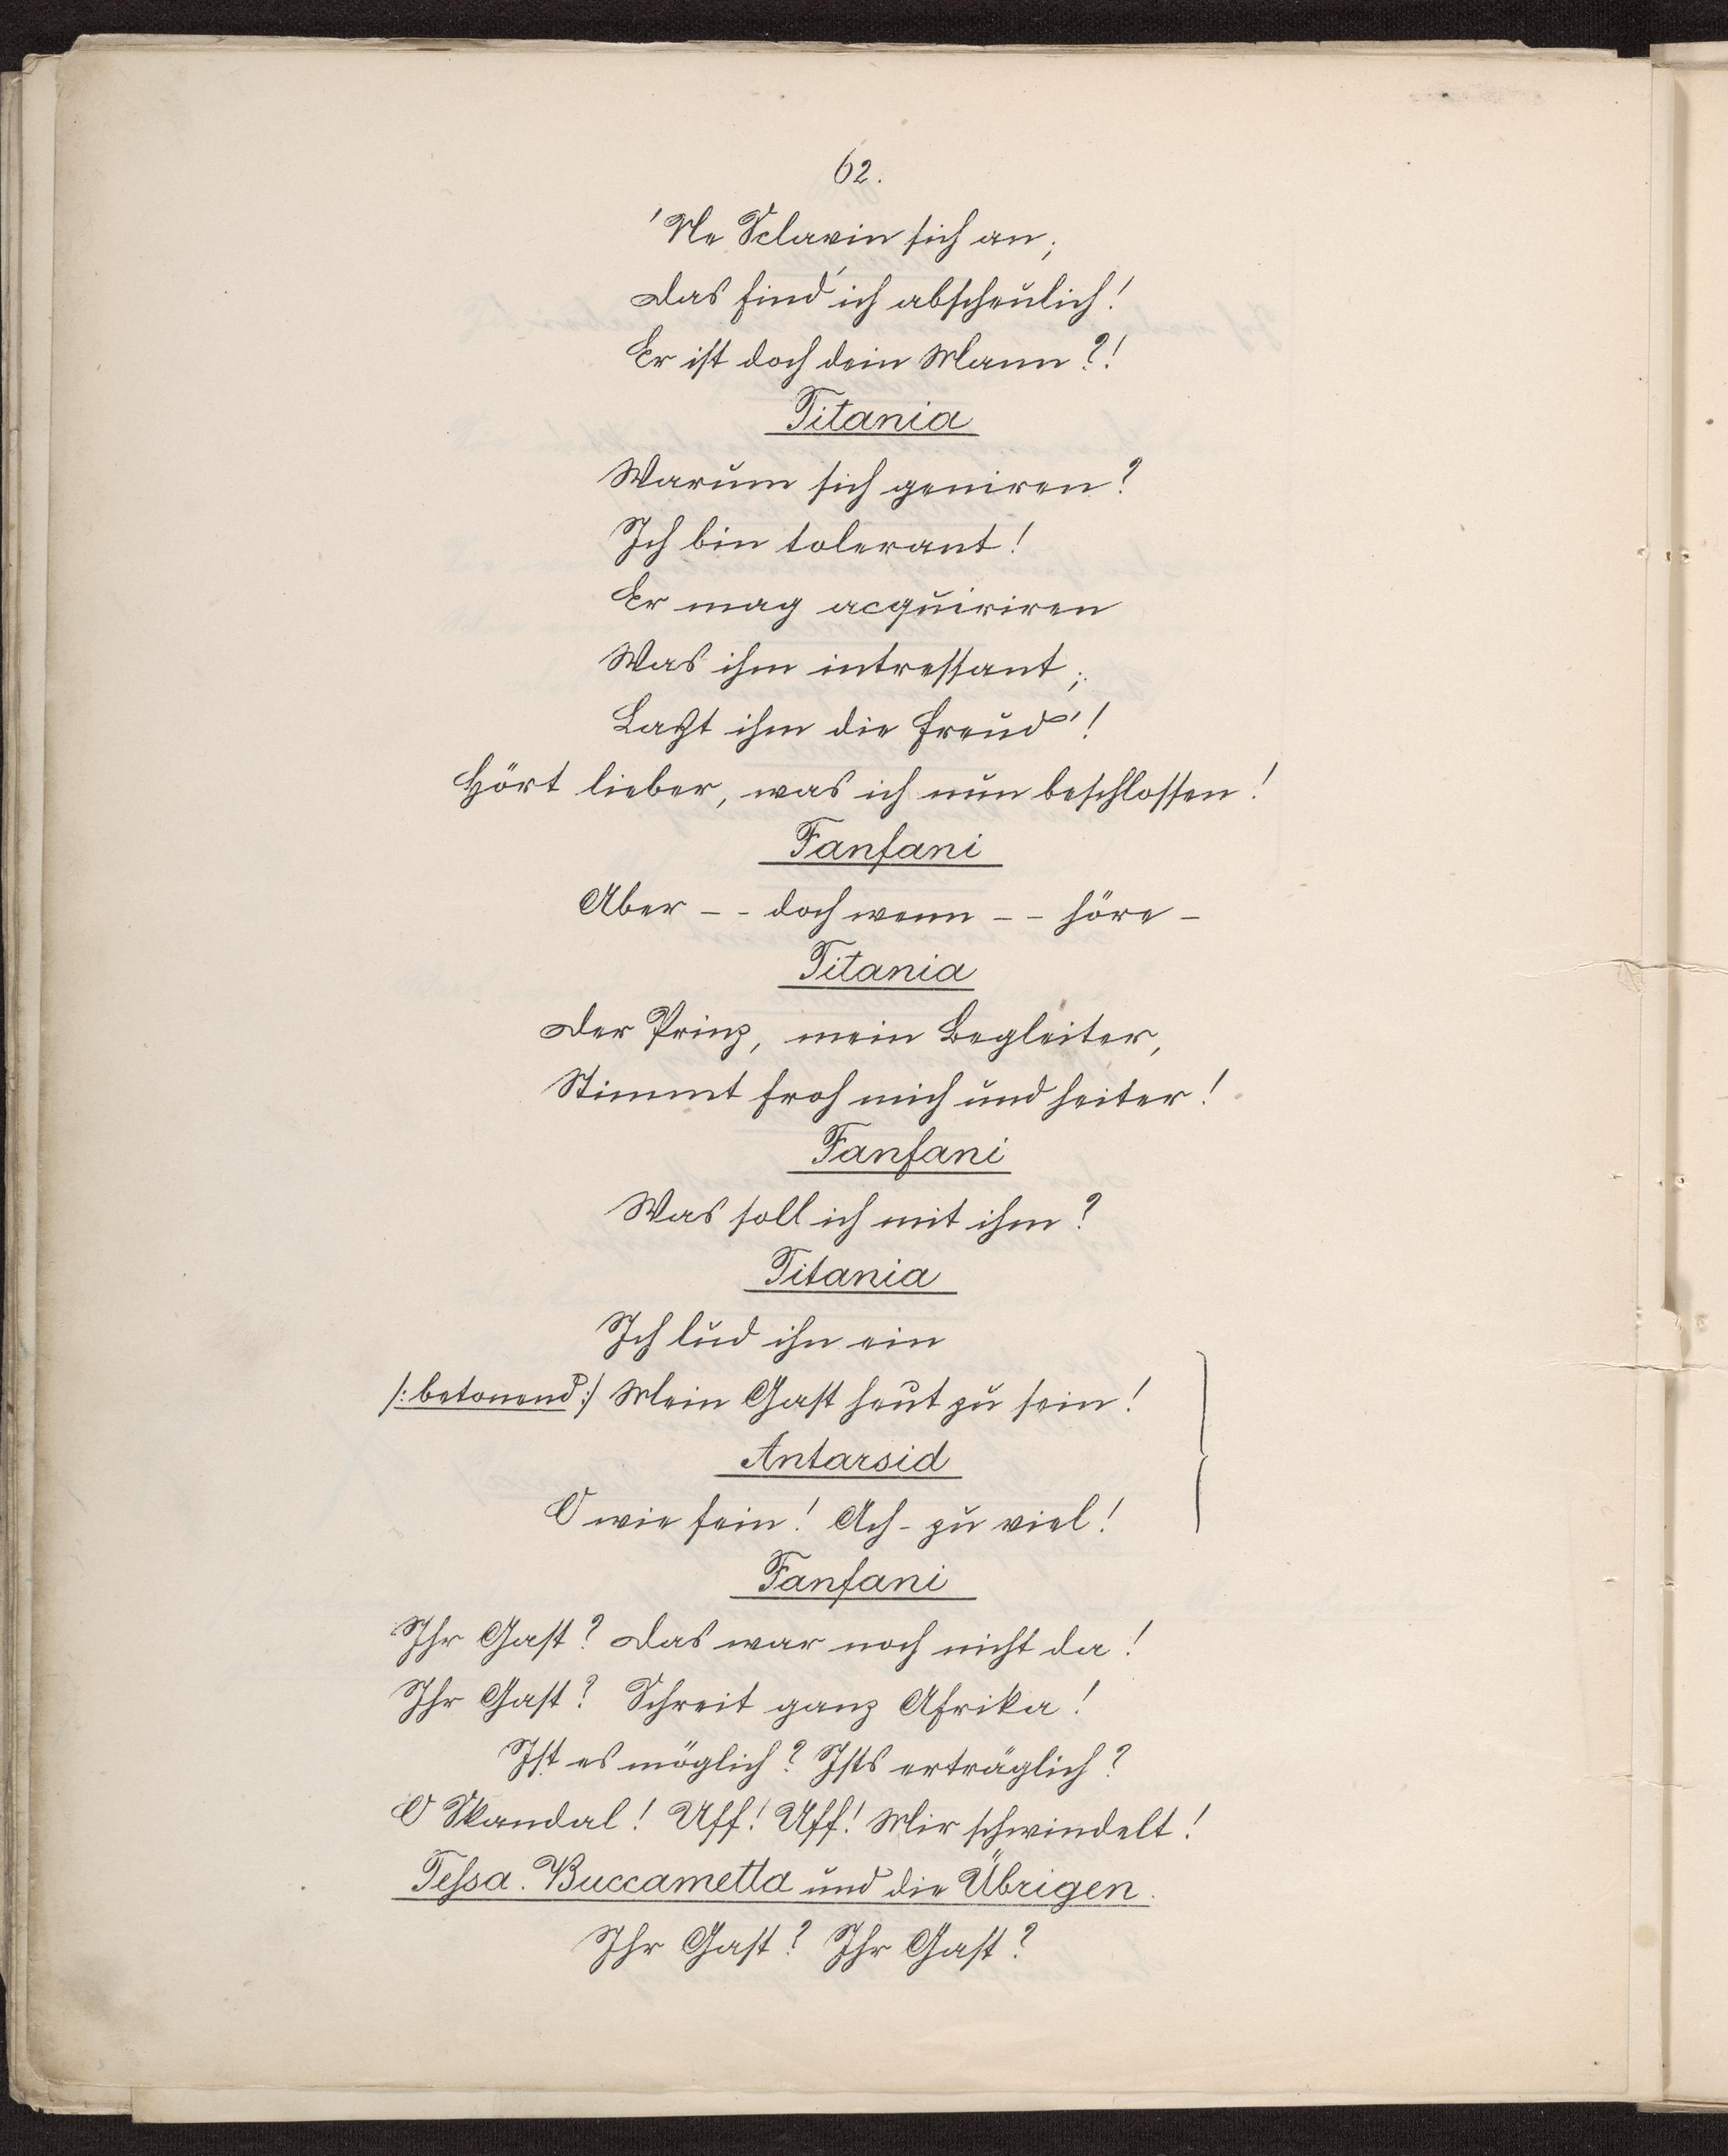 62.
'Ne Sclavin sich an;
Das find' ich abscheulich!
Er ist doch dein Mann?!
Titania
Warum sich geniren?
Ich bin tolerant!
Er mag acquiriren
Was ihm intressant;
Laßt ihm die Freud'!
Hört lieber, was ich nun beschlossen!
Fanfani
Aber -- doch wenn -- höre -
Titania
Der Prinz, mein Begleiter,
Stimmt froh mich und heiter!
Fanfani
Was soll ich mit ihm?
Titania
Ich lud ihn ein
/:betonend:/ Mein Gast heut zu sein!
Antarsid
O wie fein! Ach - zu viel!
Fanfani
Ihr Gast? Das war noch nicht da!
Ihr Gast? Schreit ganz Afrika!
Ist es möglich? Ists erträglich?
O Skandal! Uff! Uff! Mir schwindelt!
Tessa. Buccametta und die Übrigen.
Ihr Gast? Ihr Gast?